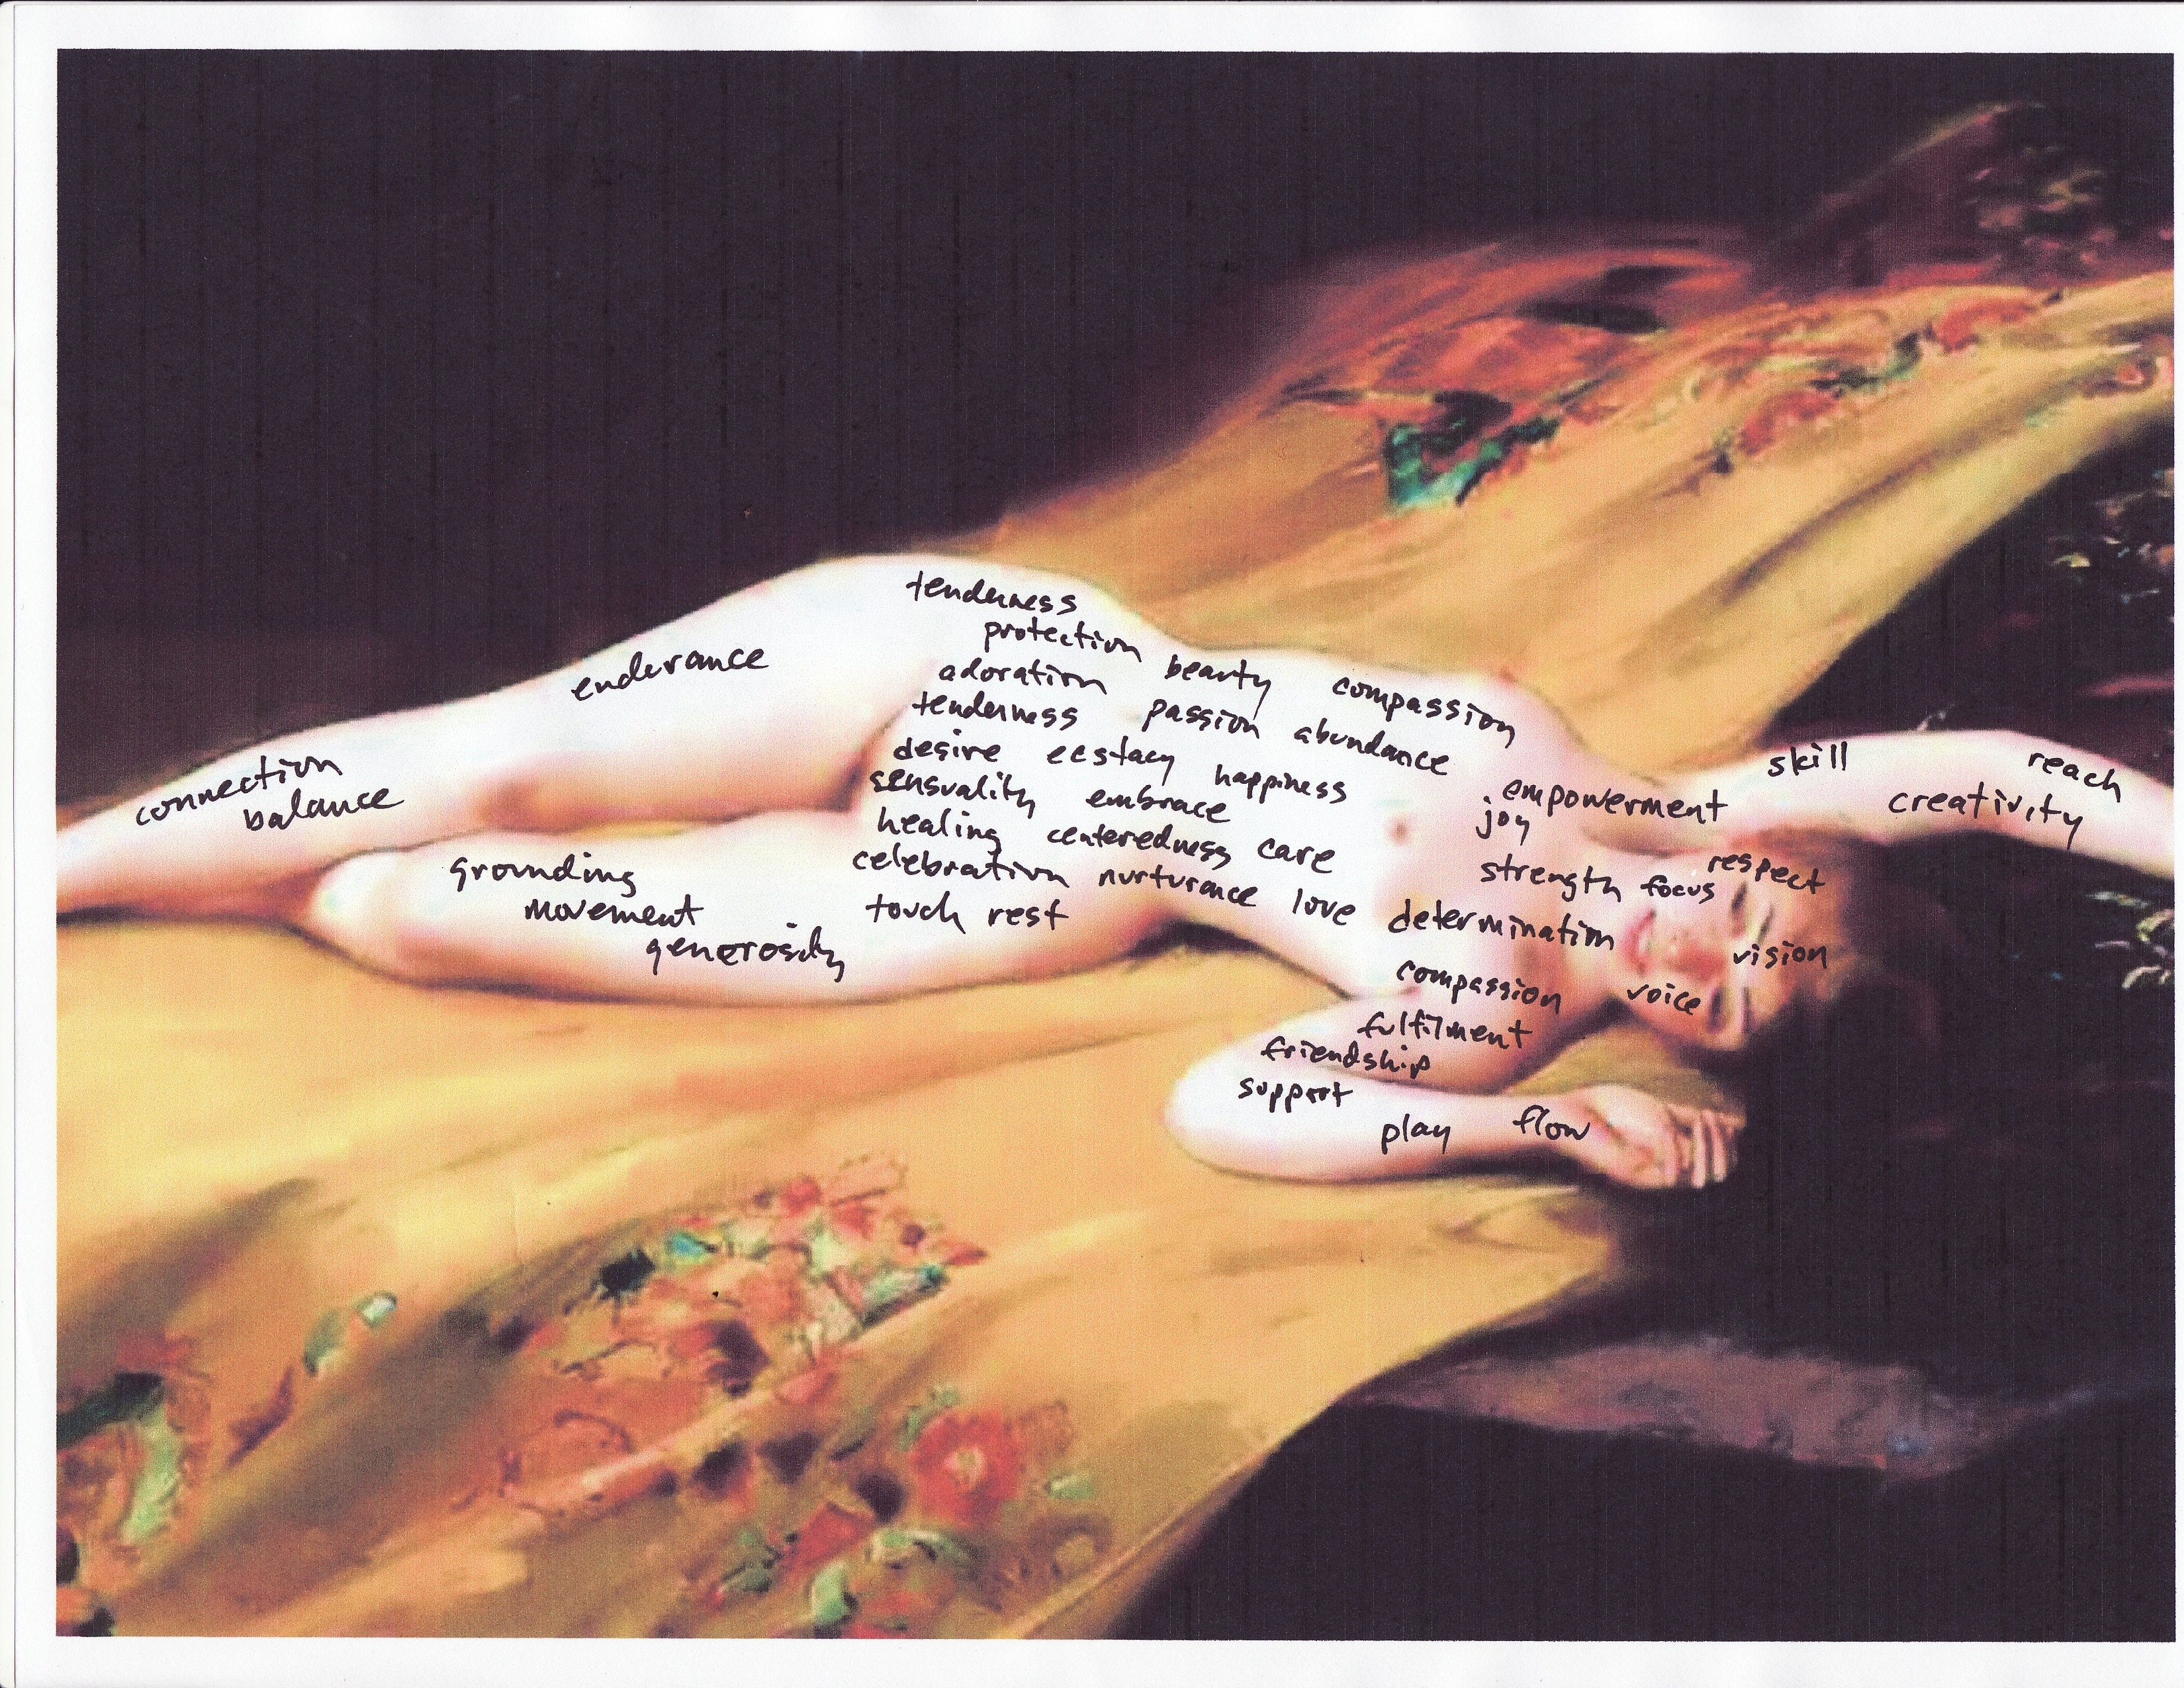 tenderness
protection
adoration beauty compassion
tenderness passion abundance
desire ecstacy happiness
sensuality embrace
healing centeredness care
celebration nurturance love determination
touch rest
endurance
connection
balance
grounding
movement
generosity
empowerment
joy
strength focus respect
vision
voice
compassion
fulfilment
friendship
support
play flow
skill reach
creativity